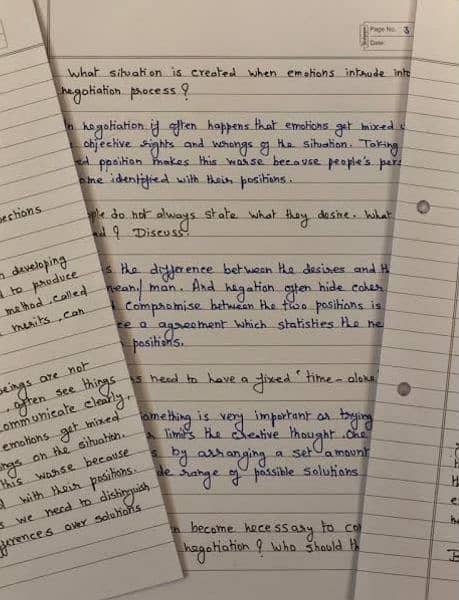 Page No. 3
Date:
What situation is created when emotions intrude into
negotiation process?
In hegotiation it often happens that emotions get mixed
objective rights and whongs of the situation. Taking
ed ppoition makes this warse because people's per
me identified with their positions.
ple do not always state what they desire. What
d? Discuss.
s the difference between the desires and th
nean/ man. And hegation often hide coher
Compromise between the two positions is
ce a agreement which statisties the ne
positions.
s need to have a fixed "time-alone
omething is very important as trying
limits the creative thought. One
s by arranging a set amount
de range of possible solutions
n become hecessary to co
hagotiation? Who should th
ections
n developing
d to produce
method, called
merits, can
beings are not
often see things
ommunicate clearly,
emotions get mixed
ngs on the situation.
this warse because
d with their positions.
s we need to distinguish
ferences over solutions